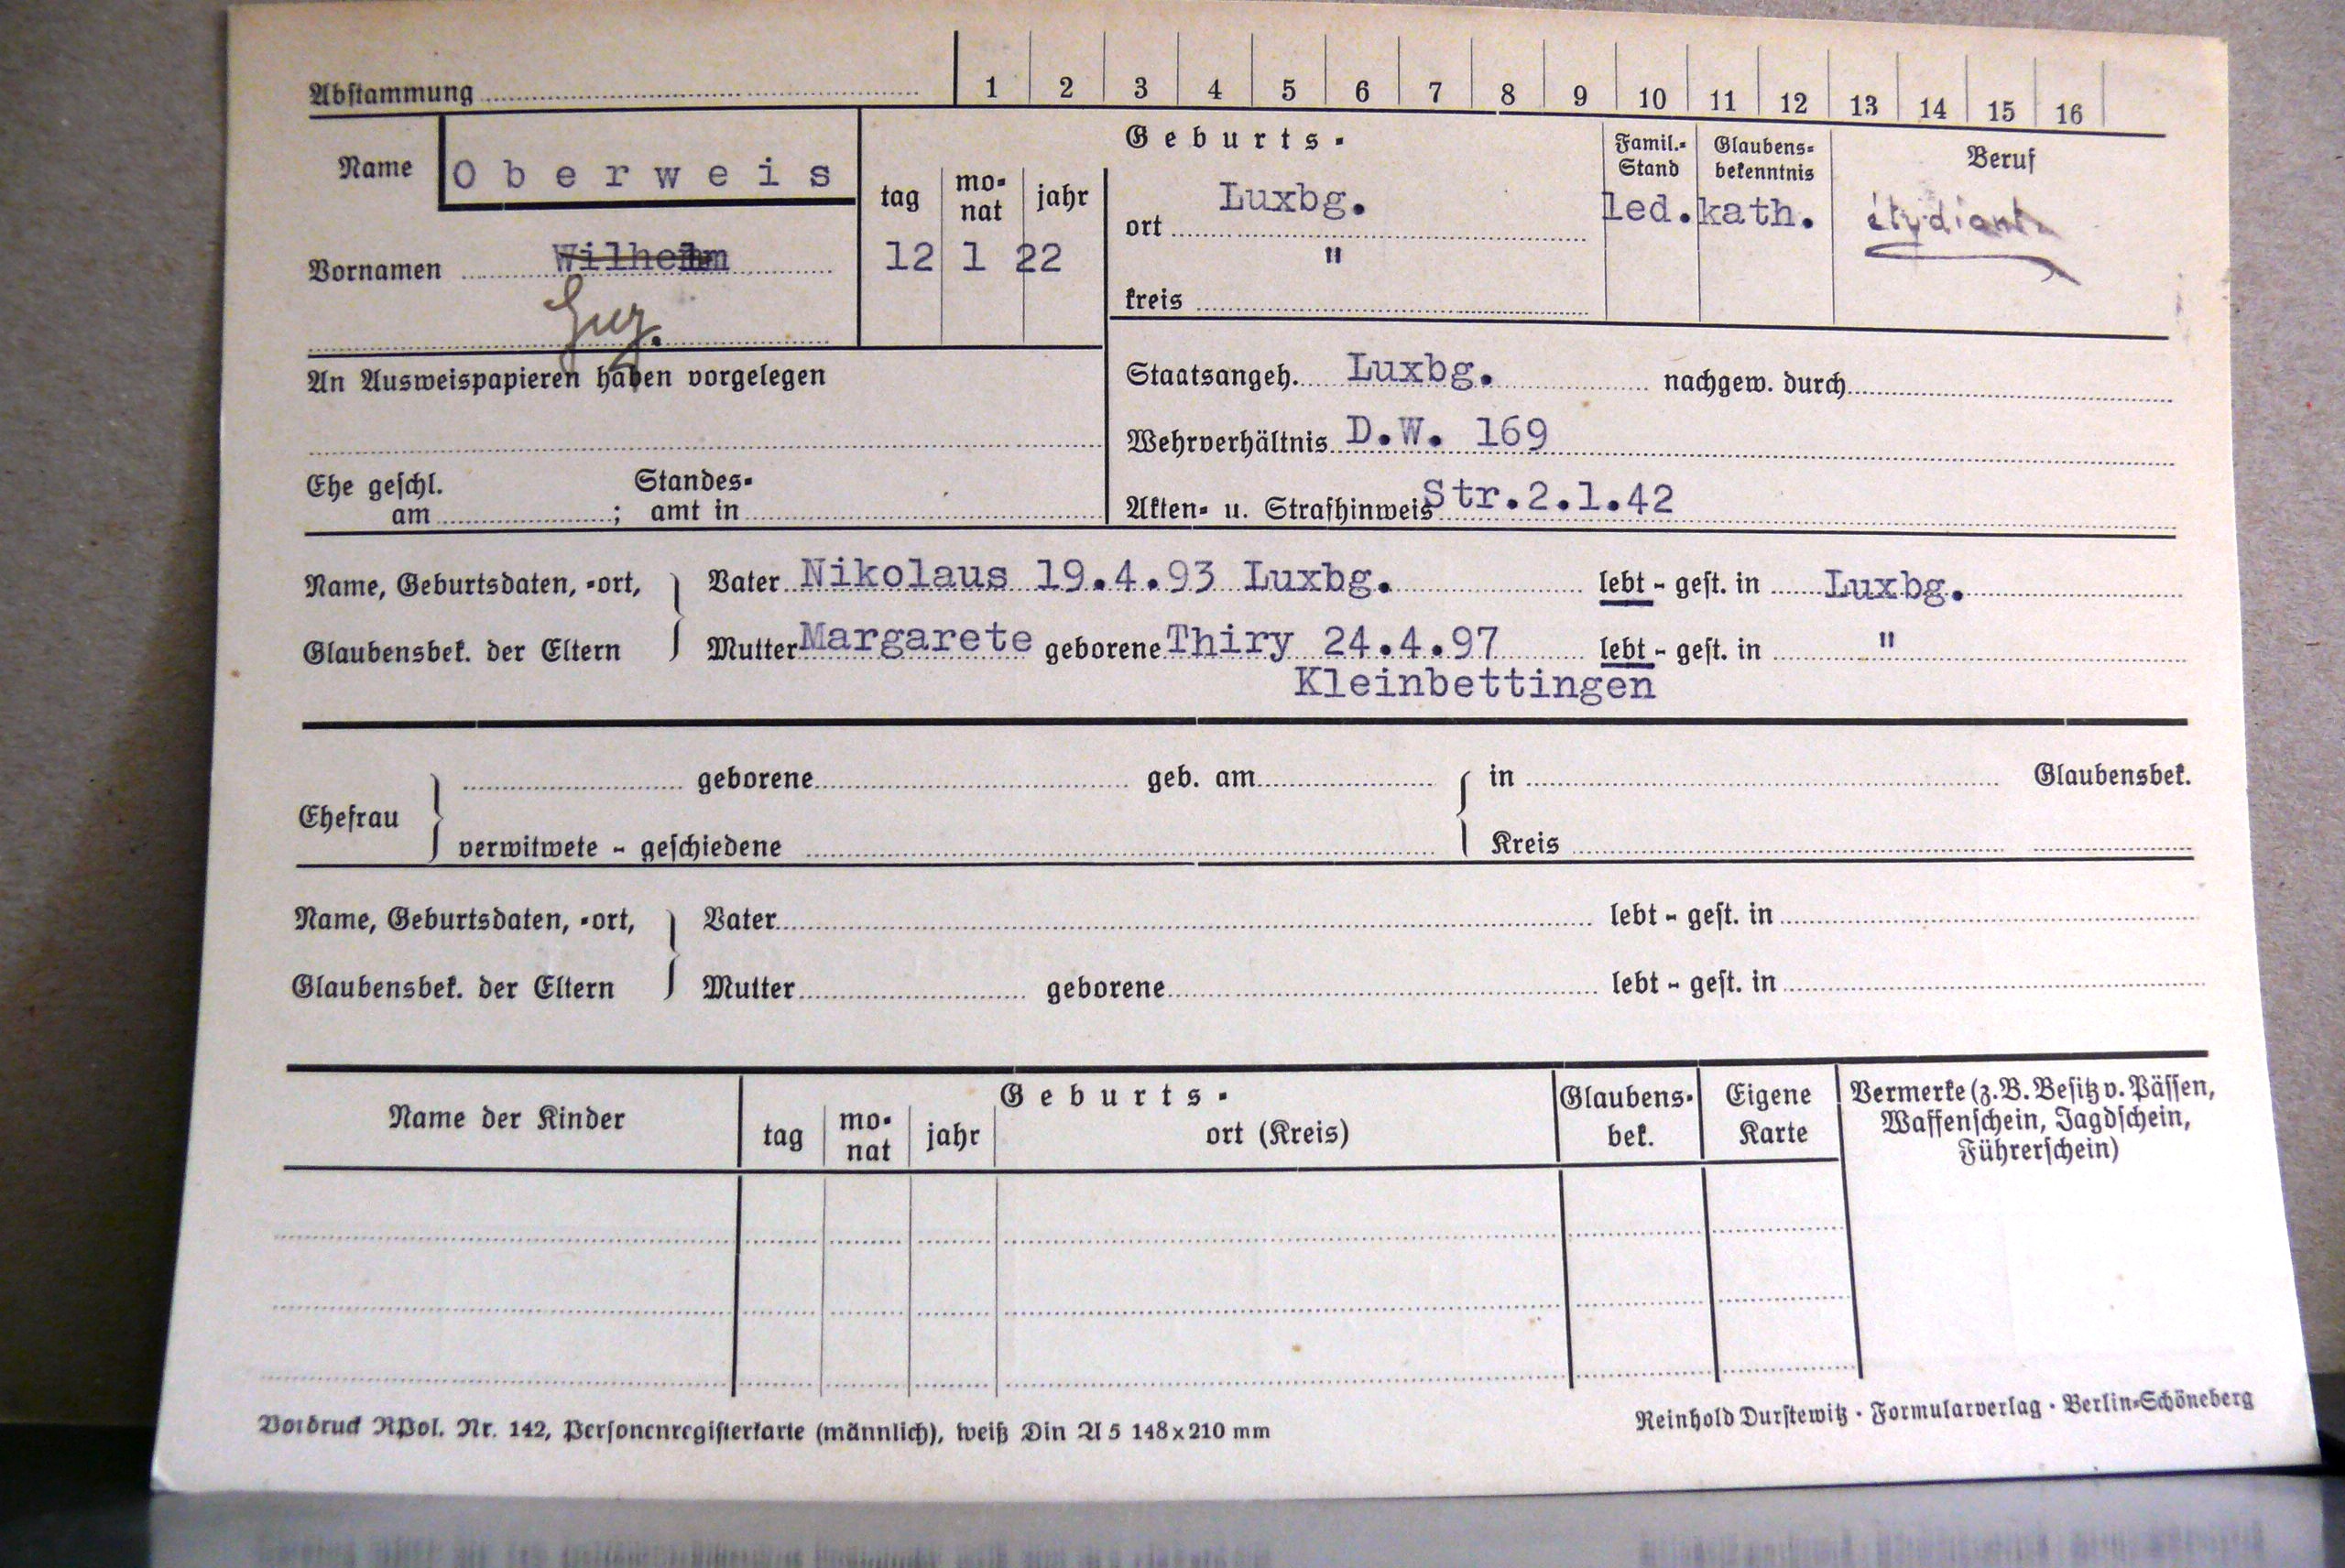 Abstammung 1 2 3 4 5 6 7 8 9 10 11 12 13 14 15 16
Name Oberweis
Geburts-
tag monat jahr
Famil.-Stand Glaubens-bekenntnis Beruf
ort Luxbg.
led. kath. étudiant
Vornamen Wilhelm 12 1 22
"
kreis
Guy.
An Ausweispapieren haben vorgelegen
Staatsangeh. Luxbg. nachgew. durch
Wehrverhältnis D.W. 169
Ehe geschl. am ; Standesamt in
Akten- u. Strafhinweis Str.2.1.42
Name, Geburtsdaten, -ort, Vater Nikolaus 19.4.93 Luxbg. lebt - gest. in Luxbg.
Glaubensbek. der Eltern Mutter Margarete geborene Thiry 24.4.97 lebt - gest. in "
Kleinbettingen
geborene geb. am in Glaubensbek.
Ehefrau
verwitwete - geschiedene Kreis
Name, Geburtsdaten, -ort, Vater lebt - gest. in
Glaubensbek. der Eltern Mutter geborene lebt - gest. in
Name der Kinder
Geburts-
tag monat jahr ort (Kreis)
Glaubens-bek.
Eigene Karte
Vermerke (z. B. Besitz v. Pässen,
Waffenschein, Jagdschein,
Führerschein)
Vordruck RPol. Nr. 142, Personenregisterkarte (männlich), weiß Din A 5 148 x 210 mm
Reinhold Durstewitz · Formularverlag · Berlin-Schöneberg